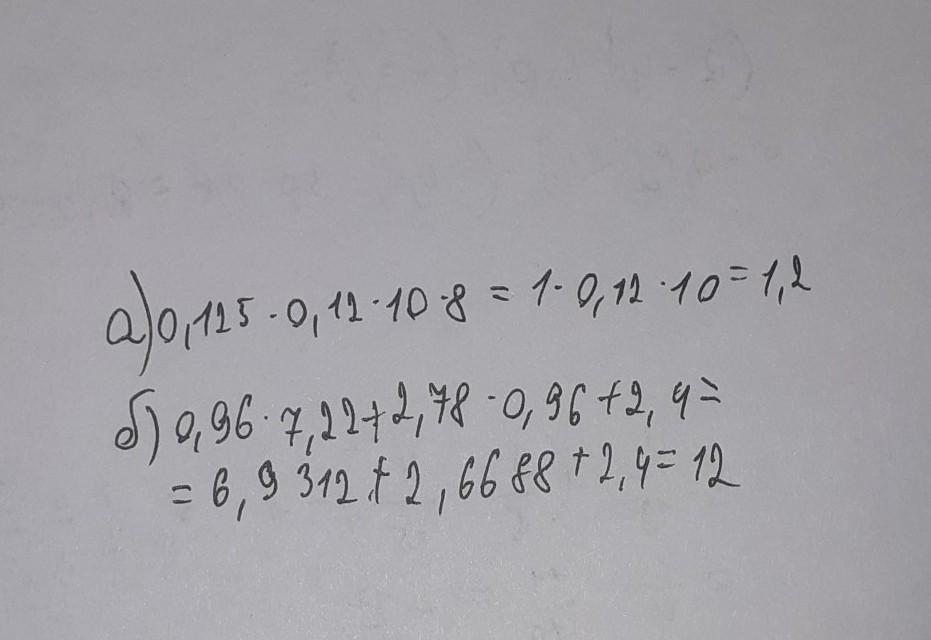 а) 0,125 · 0,12 · 10 · 8 = 1 · 0,12 · 10 = 1,2
б) 0,96 · 7,22 + 2,78 · 0,96 + 2,4 =
= 6,9312 + 2,6688 + 2,4 = 12